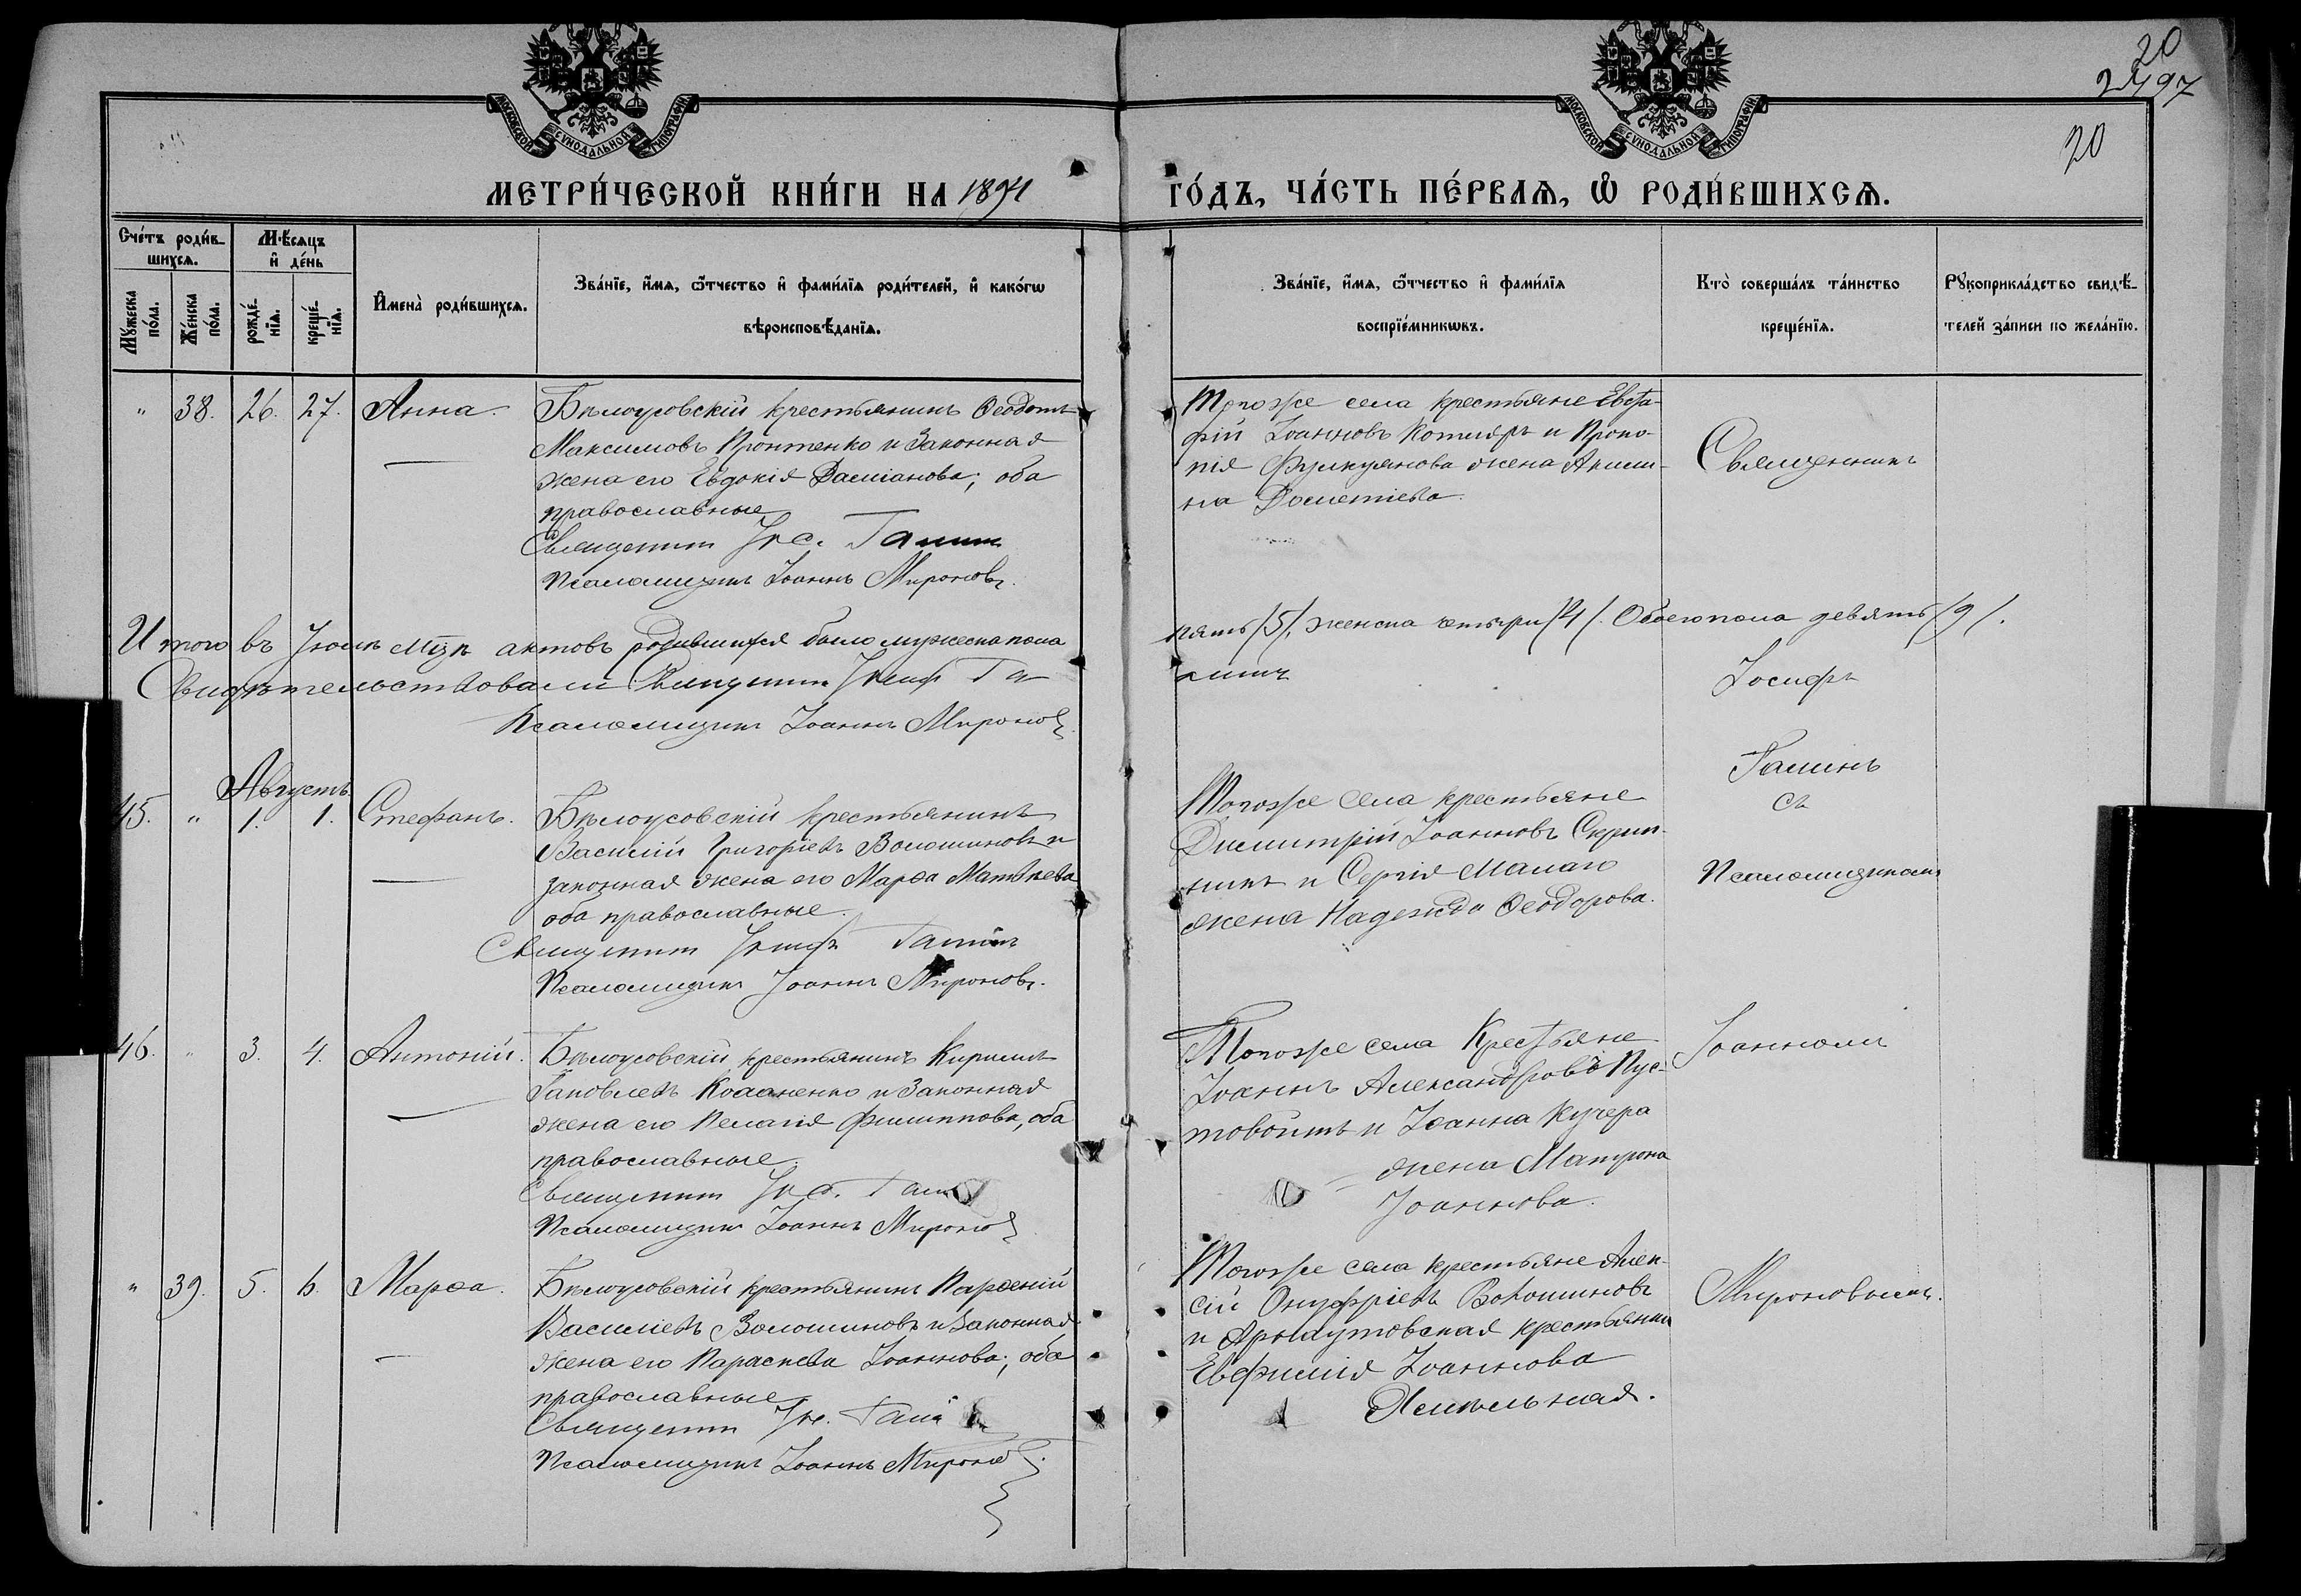 20
2497
20
МОСКОВСКОЙ СѴНОДАЛЬНОЙ ТИПОГРАФІИ
МОСКОВСКОЙ СѴНОДАЛЬНОЙ ТИПОГРАФІИ
МЕТРИ́ЧЕСКОЙ КНИ́ГИ НА 1891
ГО́ДЪ, ЧА́СТЬ ПЕ́РВАѦ, Ѡ РОДИ́ВШИХСѦ.
Сче́тъ роди́в-
шихсѧ.
Мѣ́сѧцъ
и҆ де́нь
Мꙋ́жеска по́ла.
Же́нска по́ла.
рожде́-
нїѧ.
креще́-
нїѧ.
И҆мена̀ роди́вшихсѧ.
Зва́нїе, и҆́мѧ, ѻ҆́тчество и҆ фами́лїѧ роди́телей, и҆ како́гѡ
вѣроисповѣ́данїѧ.
Зва́нїе, и҆́мѧ, ѻ҆́тчество и҆ фами́лїѧ
воспрїе́мникѡвъ.
Кто̀ соверша́лъ та́инство
креще́нїѧ.
Рꙋкоприкла́дство свидѣ́-
телей за́писи по жела́нїю.
" 38. 26. 27. Анна.
Бѣлоусовскій крестьянинъ Ѳеодотъ
Максимовъ и законная
жена его Евдокія Даміанова, оба
православные
Священникъ Іос. Галинъ
Псаломщикъ Іоаннъ Мироновъ.
Тогоже села крестьяне Евста-
фій Іоанновъ Котляръ и Проко-
пія жена Акили-
на Дометіева
Священникъ
Итого въ Іюлѣ мцѣ актовъ родившихся было мужеска пола
пять /5/, женска четыри /4/. Обоего пола девять /9/.
Свидѣтельствовали: Священникъ Іосифъ Га
линъ
Псаломщикъ Іоаннъ Мироновъ
Іосифъ
Галинъ
съ
Псаломщикомъ
Августъ
45. " 1. 1. Стефанъ.
Бѣлоусовскій крестьянинъ
Василій Григоріевъ Волошиновъ и
законная жена его Марѳа Матѳѣева
оба православные.
Священникъ Іосифъ Галинъ
Псаломщикъ Іоаннъ Мироновъ.
Тогоже села крестьяне
Димитрій Іоанновъ Скрип-
никъ и Сергія Малаго
жена Надежда Ѳеодорова.
46. " 3. 4. Антоній.
Бѣлоусовскій крестьянинъ Кириллъ
Іаковлевъ и законная
жена его Пелагія Филиппова, оба
православные
Священникъ Іос. Галинъ
Псаломщикъ Іоаннъ Мироновъ
Тогоже села Крестьяне
Іоаннъ Александровъ Пус-
товойтъ и Іоанна Кучера
жена Матрона
Іоаннова.
Іоанномъ
" 39. 5. 6. Марѳа.
Бѣлоусовскій крестьянинъ Парѳеній
Василіевъ Волошиновъ и законная
жена его Параскева Іоаннова, оба
православные
Священникъ Іос. Галинъ
Псаломщикъ Іоаннъ Мироновъ
Тогоже села крестьяне Алек-
сій Онуфріевъ Волошиновъ
и Арнаутовская крестьянка
Евфимія Іоаннова
Хмѣльная.
Мироновымъ.